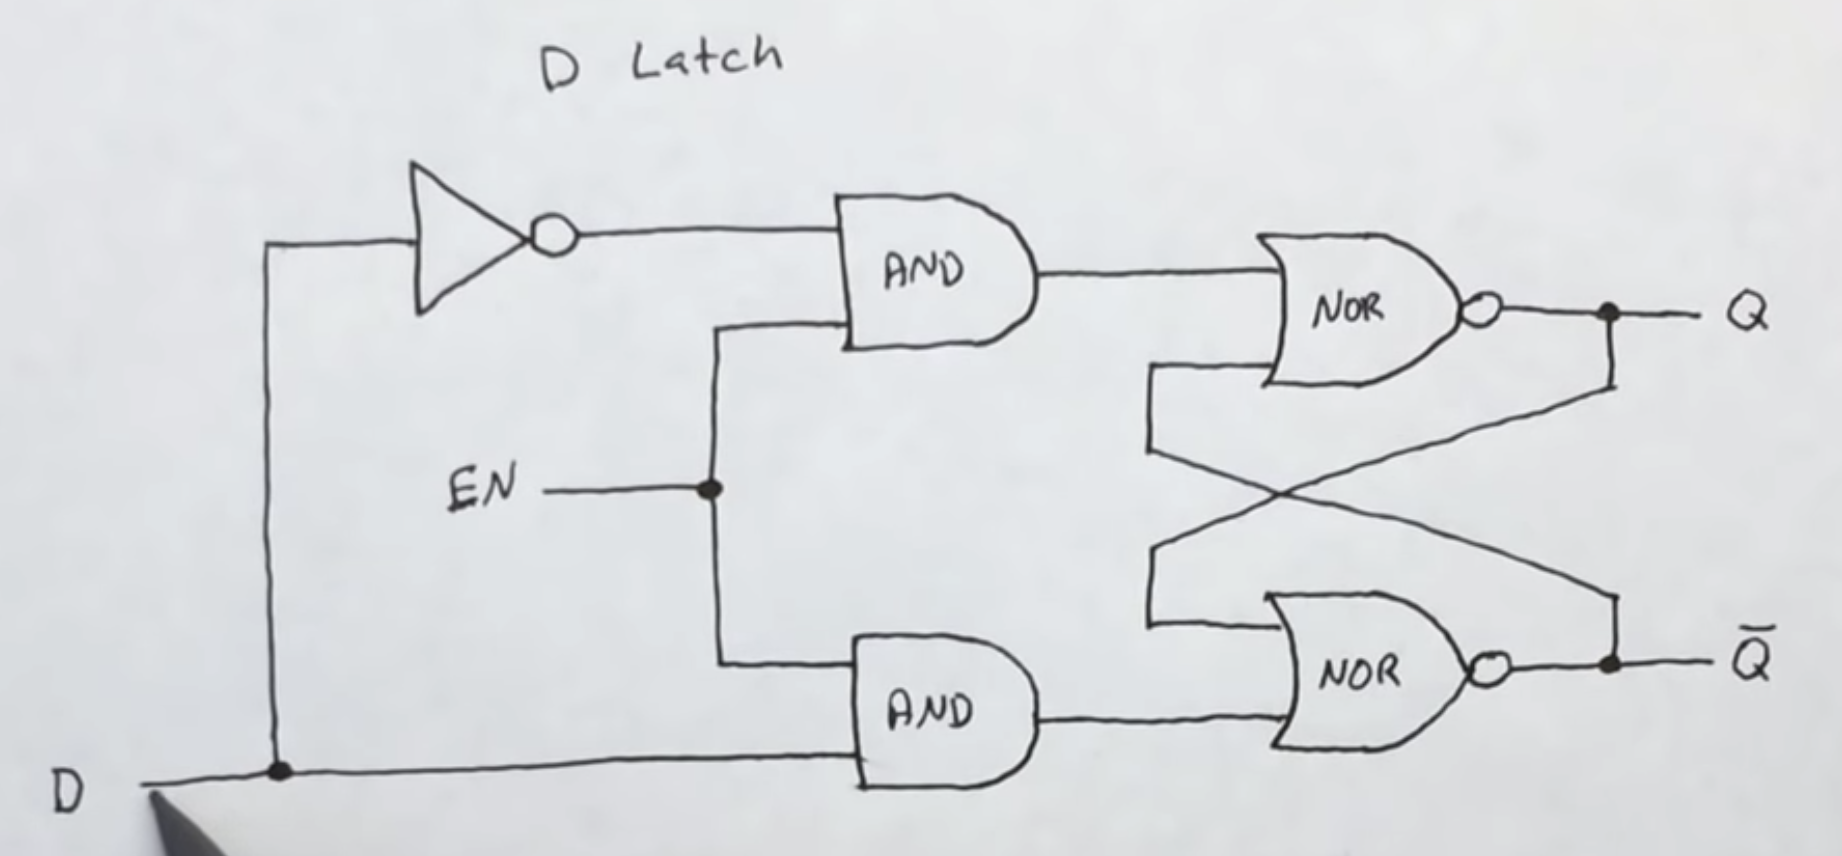 D Latch
AND
NOR
Q
EN
AND
NOR
Q̅
D